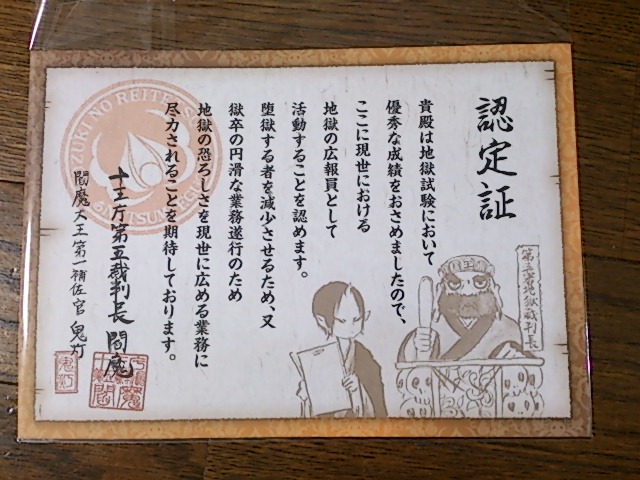 認定証
貴殿は地獄試験において
優秀な成績をおさめましたので、
ここに現世における
地獄の広報員として
活動することを認めます。
堕獄する者を減少させるため、又
獄卒の円滑な業務遂行のため
地獄の恐ろしさを現世に広める業務に
尽力されることを期待しております。
十王庁第五裁判長 閻魔
閻魔大王第一補佐官 鬼灯
HOZUKI NO REITETSU